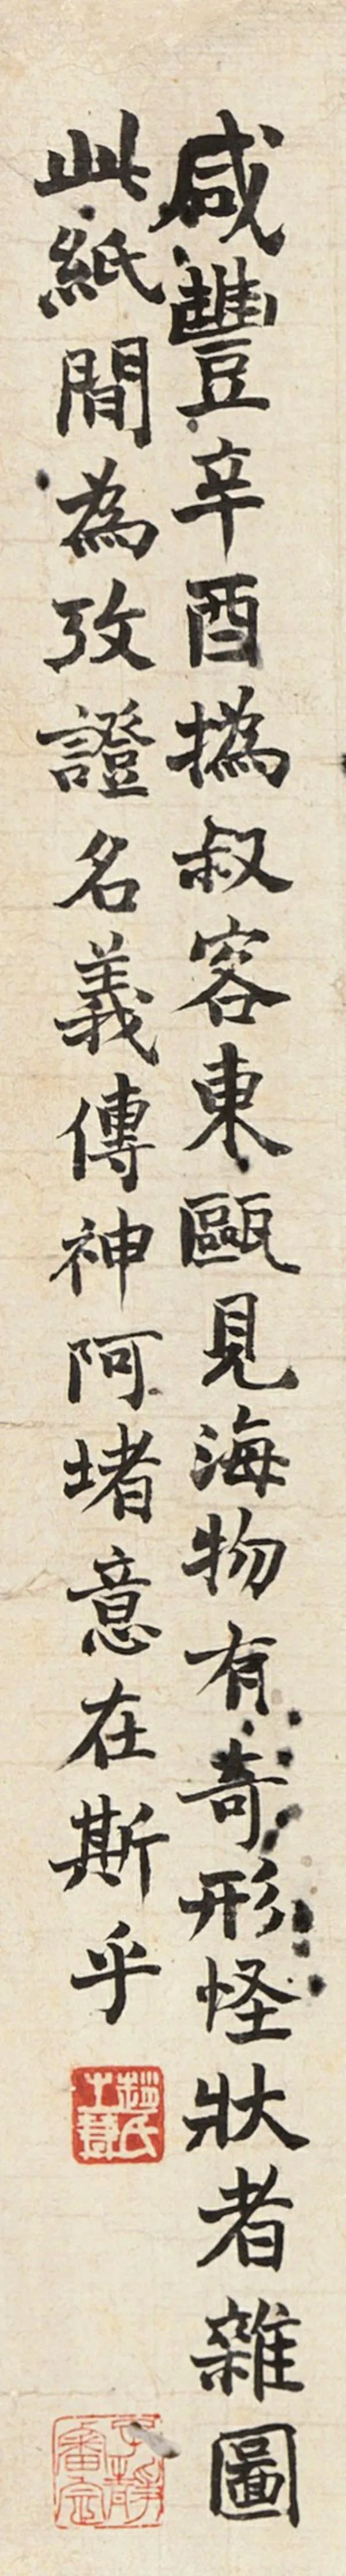 咸豐辛酉撝叔客東甌見海物有奇形怪狀者雜圖
此紙間為攷證名義傳神阿堵意在斯乎